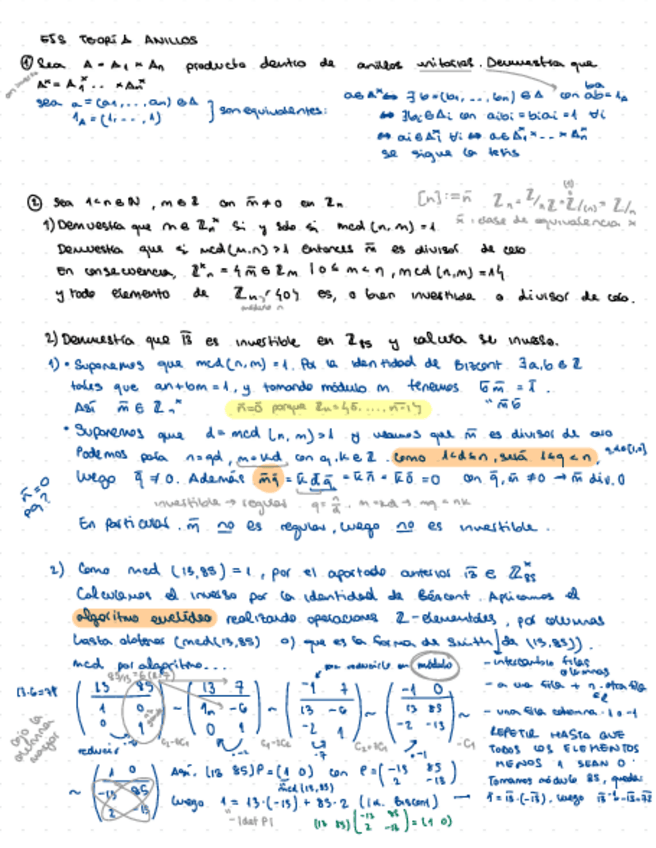 EJS TEORÍA ANILLOS
① Sea A = A₁ × Aₙ producto dentro de anillos unitarios. Demuestra que
Aˣ = A₁ˣ .. × Aₙˣ
sea a = (a₁, ..., aₙ) ∈ A
1_A = (1, ..., 1)
} son equivalentes:
a ∈ Aˣ ⇔ ∃ b = (b₁, ..., bₙ) ∈ A con ab = 1_A
ba
⇔ ∃ bᵢ ∈ Aᵢ con aᵢbᵢ = bᵢaᵢ = 1 ∀i
⇔ aᵢ ∈ Aᵢˣ ∀i ⇔ a ∈ A₁ˣ × .. × Aₙˣ
se sigue la tesis
② Sea 1 < n ∈ ℕ, m ∈ ℤ con m̄ ≠ 0 en ℤₙ
[n] := n̄
n̄ : clase de equivalencia
1) Demuestra que m ∈ ℤₙˣ si y solo si mcd (n, m) = 1
Demuestra que si mcd (m, n) > 1 entonces m̄ es divisor de cero
En consecuencia, ℤˣₙ = { m̄ ∈ ℤₘ | 0 ≤ m < n, mcd (n, m) = 1 }
y todo elemento de ℤₙ \ {0} es, o bien invertible o divisor de cero.
módulo n
2) Demuestra que 13 es invertible en ℤ₈₅ y calcula su inverso.
1) • Suponemos que mcd (n, m) = 1. Por la identidad de Bizcont ∃ a, b ∈ ℤ
tales que an + bm = 1, y tomando módulo m tenemos b̄ m̄ = 1̄.
" m̄ b̄
Así m̄ ∈ ℤₙˣ
n̄ = 0̄ porque ℤₙ = {0̄, ..., n-1}
• Suponemos que d = mcd (n, m) > 1 y veamos que m̄ es divisor de cero
Podemos poner n = qd, m = kd con q, k ∈ ℤ. Como 1 < d ≤ n, será 1 ≤ q < n,
n̄ = 0 por?
luego q̄ ≠ 0. Además m̄q̄ = k̄ d̄ q̄ = k̄ n̄ = k̄ 0̄ = 0 con q̄, m̄ ≠ 0 → m̄ div. 0
invertible → regular q = n/d, m = kd → mq = nk
En particular, m̄ no es regular, luego no es invertible.
2) Como mcd (13, 85) = 1, por el apartado anterior 13 ∈ ℤ₈₅ˣ
Calculamos el inverso por la identidad de Bézcont. Aplicamos el
algoritmo euclídeo realizando operaciones ℤ-elementales, por columnas
hasta obtener (mcd(13, 85) 0) que es la forma de Smith de (13, 85)).
mcd por algoritmo...
módulo
13·6 = 78
( 13 85 / 1 0 / 0 1 ) ~ ( 13 7 / 1 -6 / 0 1 ) ~ ( -1 7 / 13 -6 / -2 1 ) ~ ( -1 0 / 13 85 / -2 -13 ) ~
cojo la columna mayor
reducir
C₁-C₂
C₂+7C₁
-C₁
- intercambio filas columnas
- una fila columna · 1 o -1
REPETIR HASTA QUE
TODOS LOS ELEMENTOS
MENOS 1 SEAN 0.
~ ( 1 0 / -13 85 / 2 -13 )
Así, (13 85) P = (1 0) con P = ( -13 85 / 2 -13 )
mcd (13, 85)
Tomamos módulo 85, queda:
luego 1 = 13·(-13) + 85·2 (id. Bézcont) → 1̄ = 13·(-13), luego 13⁻¹ = -13 = 72
(13 85) ( -13 85 / 2 -13 ) = (1 0)